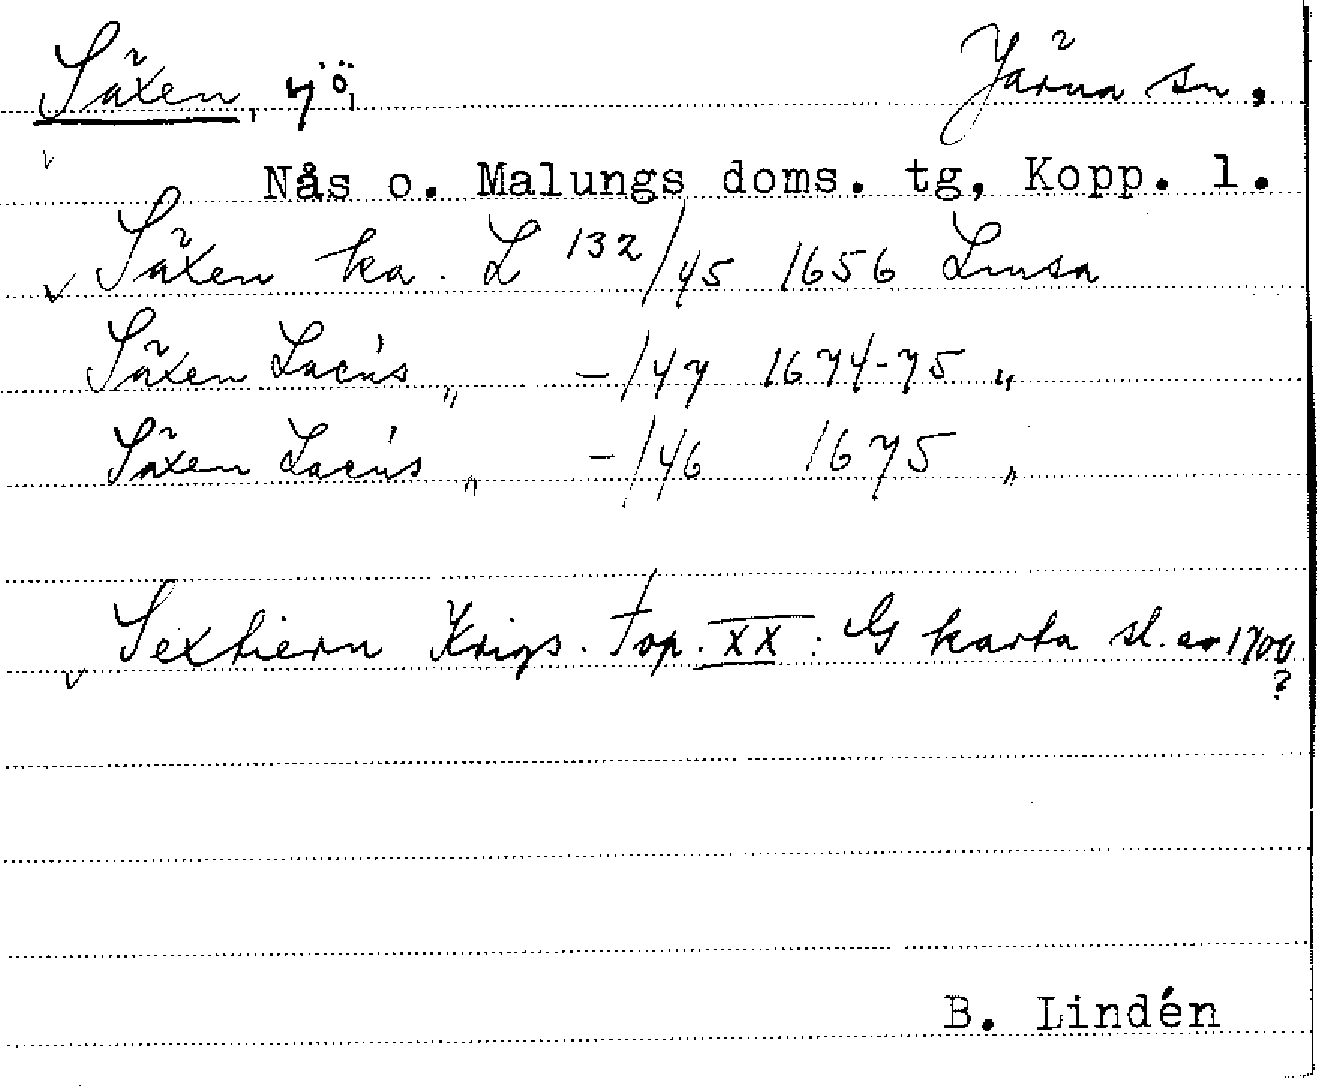 Säxen, sjö, Järna sn.
Nås o. Malungs doms. tg, Kopp. l.
Säxen ka. L 132/45 1656 Lmsa
Säxen Lacus „ -/47 1674-75 „
Säxen Lacus „ -/46 1675 „
Sextiern Krigs. Top. XX: G karta sl. av 1700
?
B. Lindén